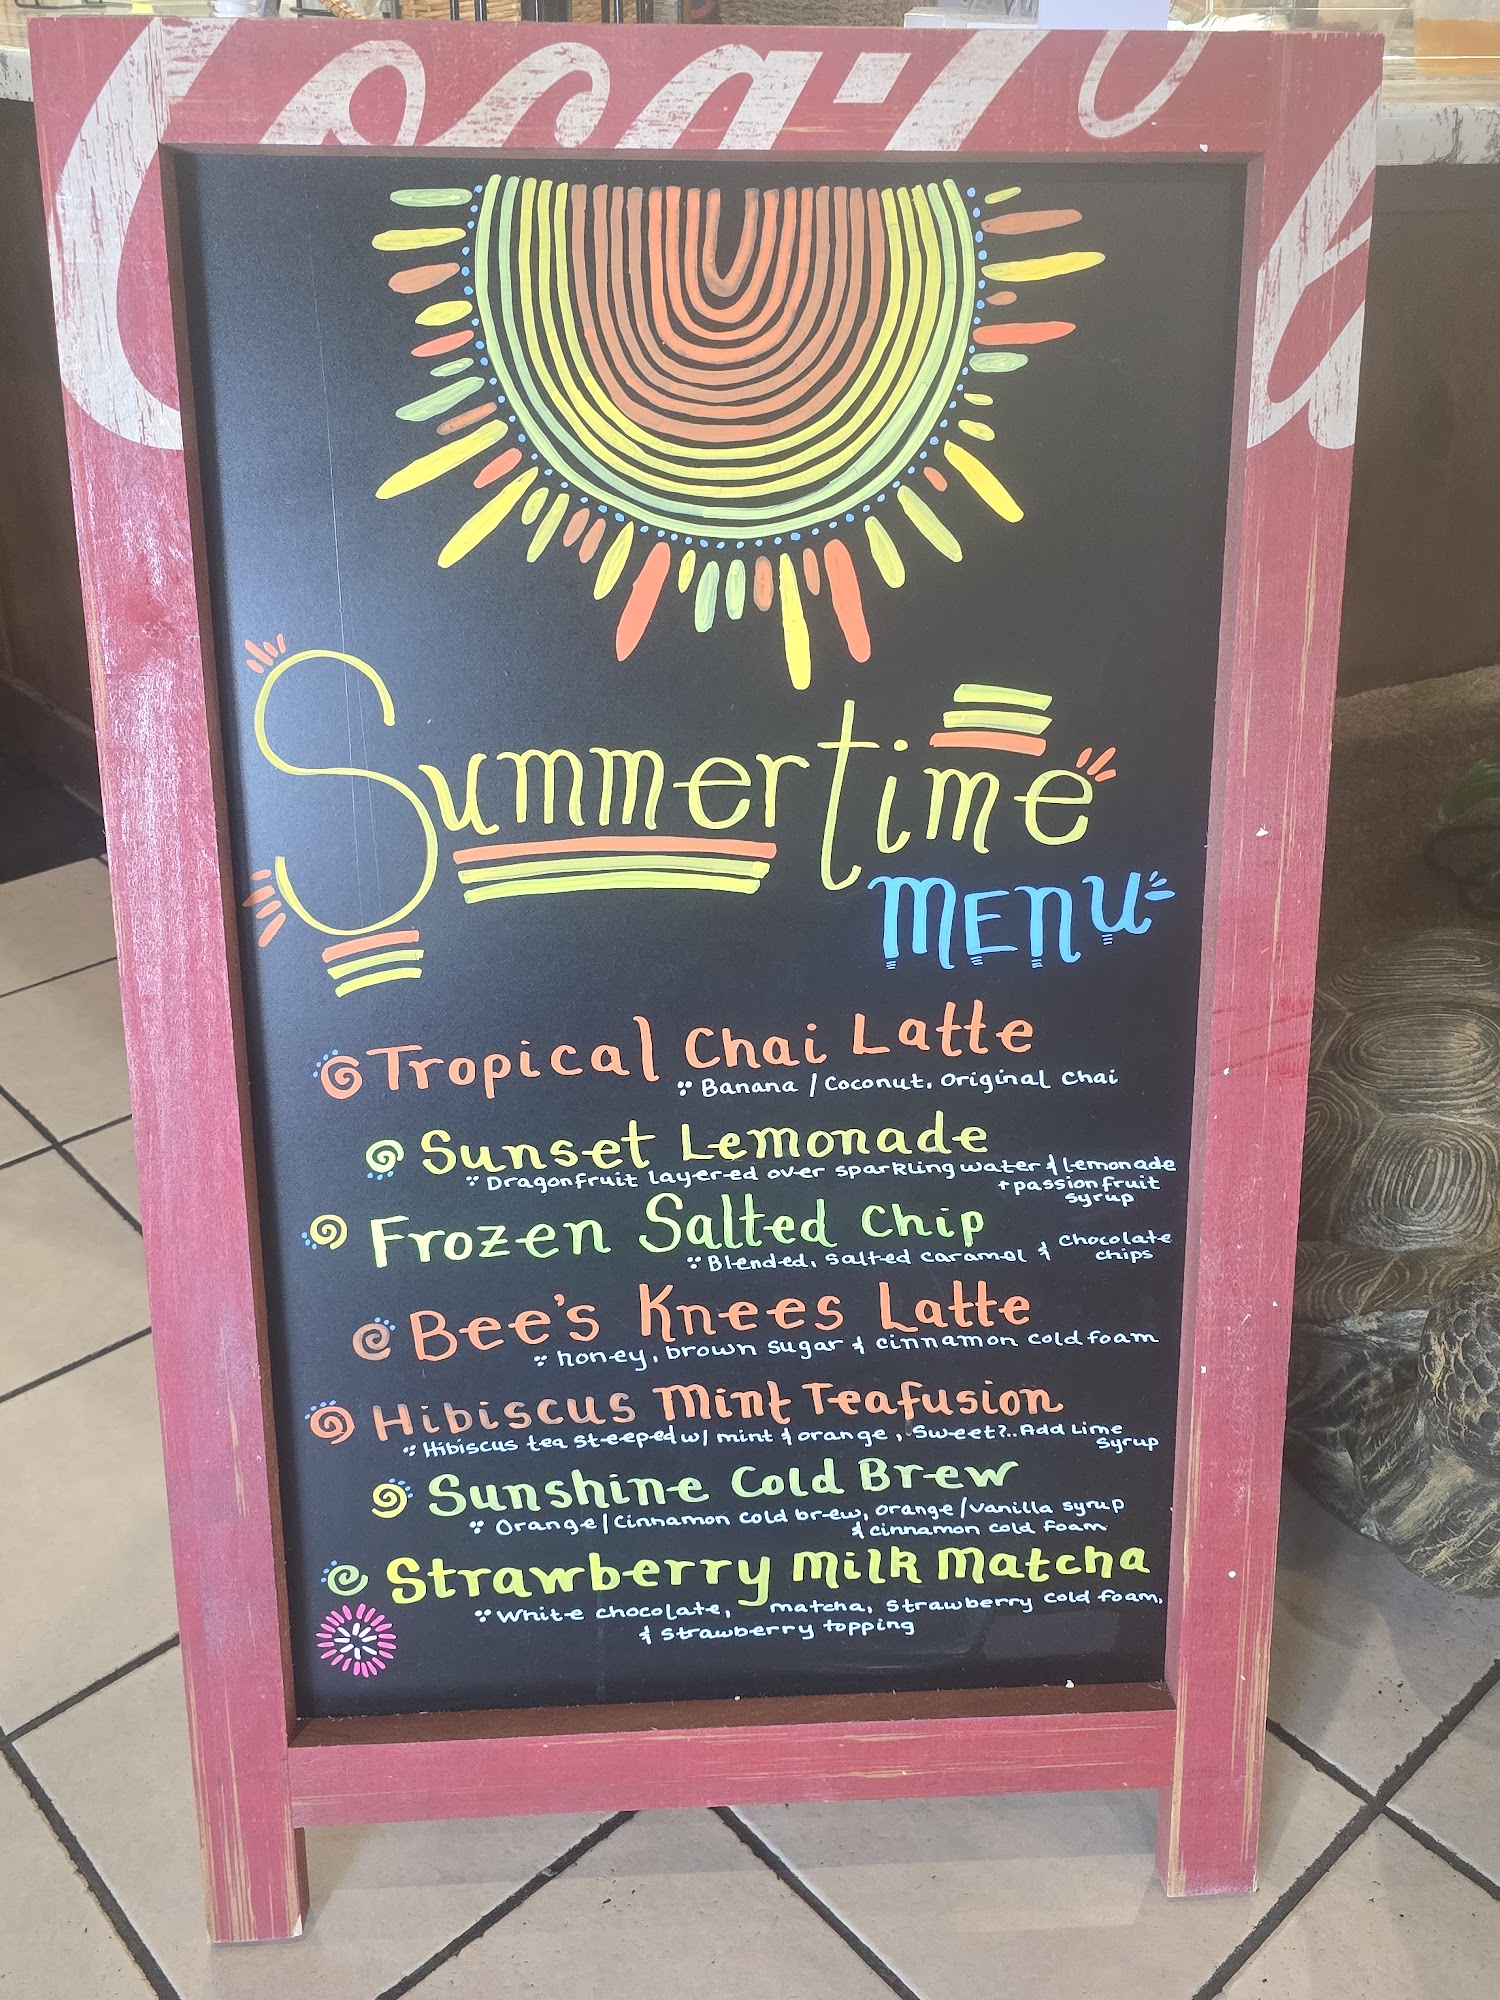 Coca-Cola
Summertime
MENU
Tropical Chai Latte
Banana / Coconut, Original Chai
Sunset Lemonade
Dragonfruit layered over sparkling water & lemonade
+ passionfruit
syrup
Frozen Salted Chip
Blended, Salted Caramel & Chocolate
chips
Bee's Knees Latte
honey, brown sugar & cinnamon cold foam
Hibiscus Mint Teafusion
Hibiscus tea steeped w/ mint & orange, Sweet?..Add Lime
Syrup
Sunshine Cold Brew
Orange/Cinnamon cold brew, orange/vanilla syrup
& cinnamon cold foam
Strawberry Milk Matcha
White chocolate, matcha, strawberry cold foam,
& strawberry topping